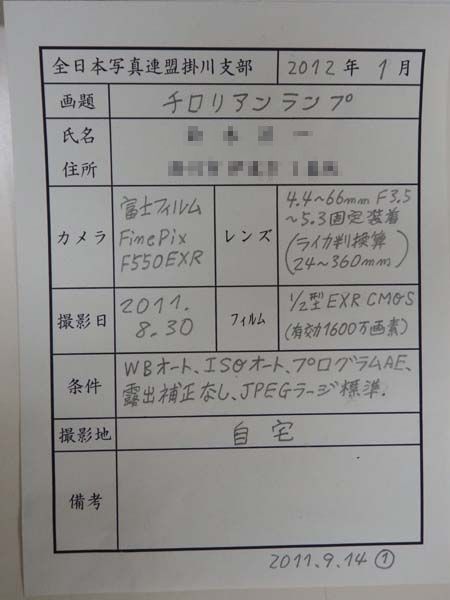 全日本写真連盟掛川支部 2012年 1月
画題 チロリアンランプ
氏名
住所
カメラ 富士フィルム
FinePix
F550EXR
レンズ 4.4~66mm F3.5
~5.3固定装着
(ライカ判換算
24~360mm)
撮影日 2011.
8.30
フィルム 1/2型 EXR CMOS
(有効1600万画素)
条件 WBオート、ISOオート、プログラムAE、
露出補正なし、JPEGラージ標準.
撮影地 自宅
備考
2011.9.14 ①